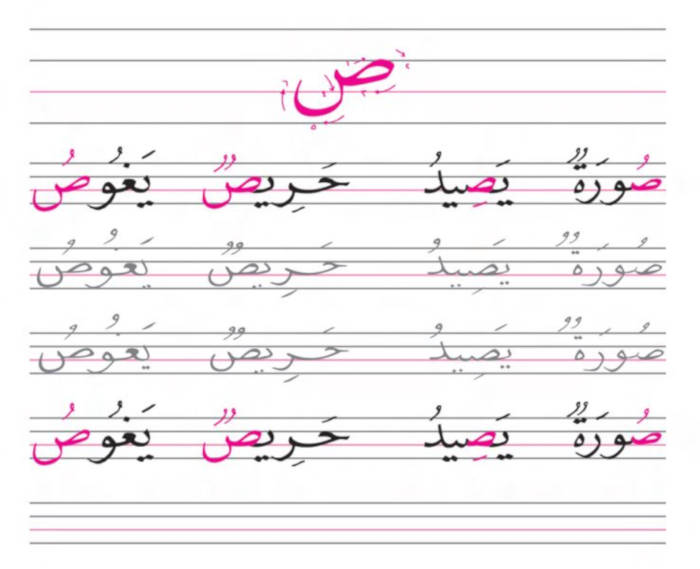 ص
صُورَةٌ يَصِيدُ حَرِيصٌ يَغُوصُ
صُورَةٌ يَصِيدُ حَرِيصٌ يَغُوصُ
صُورَةٌ يَصِيدُ حَرِيصٌ يَغُوصُ
صُورَةٌ يَصِيدُ حَرِيصٌ يَغُوصُ